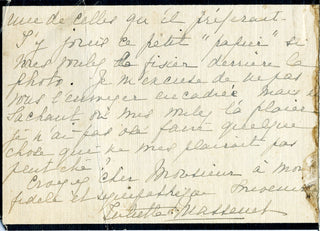 une de celles qu'il préférait.
J'y joins ce petit "papier" si
vous voulez le fixer derrière la
photo. Je m'excuse de ne pas
vous l'envoyer encadrée mais ne
sachant où vous voulez la placer
je n'ai pas osé faire quelque
chose qui ne vous plairait pas
peut être!
Croyez cher Monsieur à mon
fidèle et sympathique souvenir
Juliette Massenet